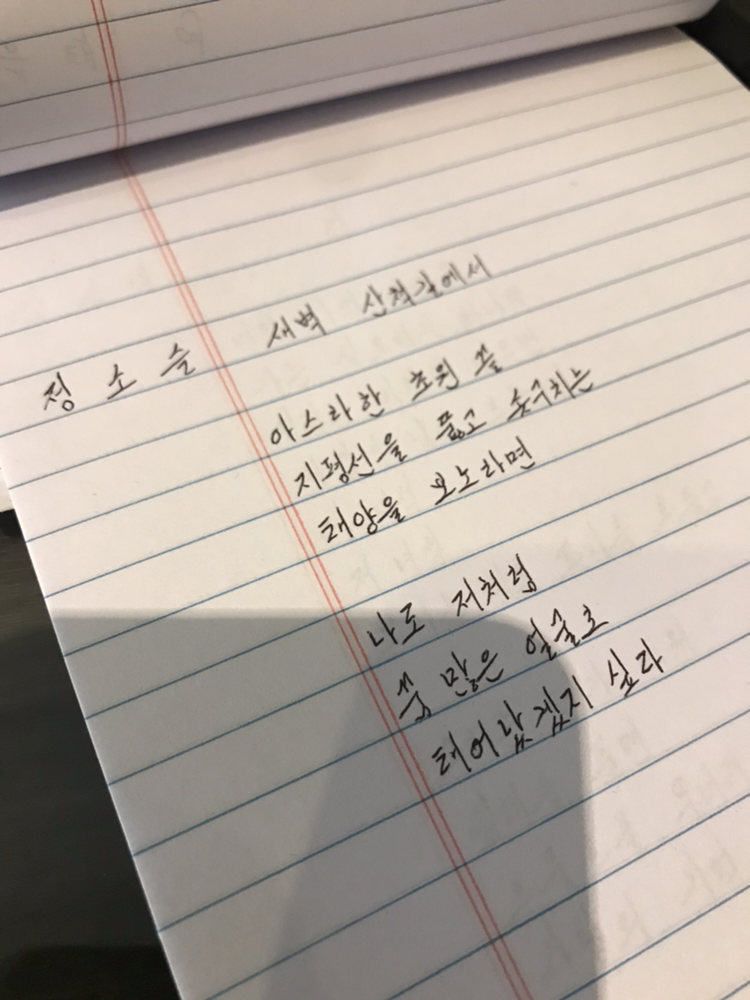 새벽 산책길에서
정 소 슬
아스라한 초원 끝
지평선을 뚫고 솟구치는
태양을 보노라면
나도 저처럼
꿈 많은 얼굴로
태어났겠지 싶다